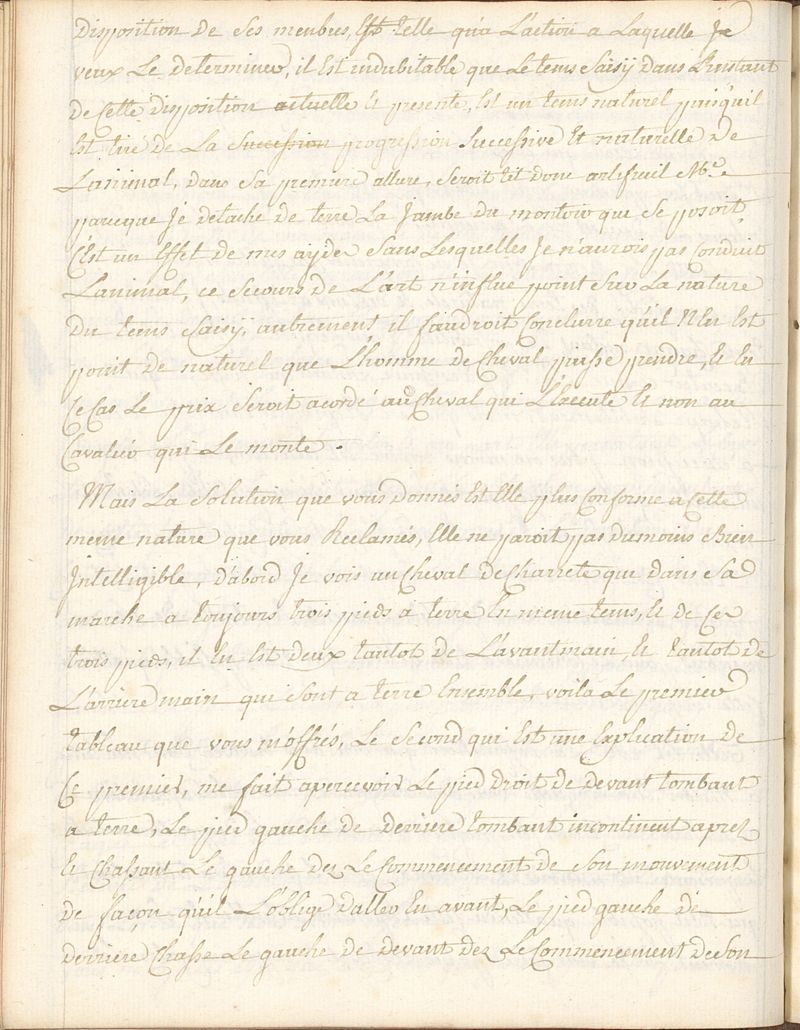 disposition de ses menbres, Est telle qu'a L'action a Laquelle Je
veux Le determiner, il Est indubitable que Le tems Saisÿ dans L'instant
de Cette disposition actuelle Et presente, Est un tems naturel puisqu'il
Est tiré de La Succession progression Successive Et naturelle De
L'animal, dans Sa premiere allure, Seroit til donc artefieuil Mr.
parceque Je detache de terre La Jambe du montoir qui Se posoit,
C'Est un Effet de mes aydes Sans Lesquelles Je n'aurois pas Conduit
L'animal, ce Secours de L'art n'influe point Sur La nature
du tems Saisÿ, autrement il faudroit Conclurre qu'il N'En Est
point de naturel que L'homme de Cheval puisse prendre, Et En
Ce Cas Le prix Seroit acordé au Cheval qui L'Execute Et non au
Cavalier qui Le monte.
Mais La Solution que vous donnés Est Elle plus Conforme a Cette
meme nature que vous Reclamés, Elle ne paroit pas dumoins Bien
Intelligible, d'abord Je vois un Cheval de Charrete qui dans Sa
marche a toujours trois pieds a terre En meme tems, Et de Ces
trois pieds, il En Est deux tantot de L'avantmain, Et tantot de
L'arriere main qui Sont a terre Ensemble, voila Le premier
tableau que vous m'offrés, Le Second qui Est une Explication de
Ce premier, me fait apercevoir Le pied droit de devant tombant
a terre, Le pied gauche de derriere tombant incontinent apres
Et Chassant Le gauche dez Le Commencement de Son mouvement
de façon qu'il L'oblige d'aller En avant, Le pied gauche de
derriere Chasse Le gauche de devant dez Le Commencement de Son